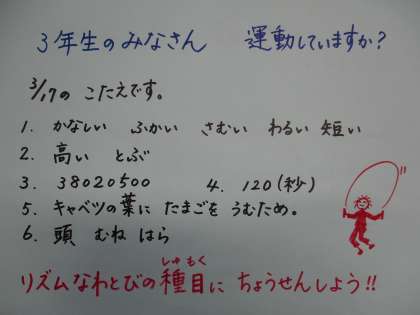 3年生のみなさん 運動していますか?
3/17の こたえです。
1. かなしい ふかい さむい わるい 短い
2. 高い とぶ
3. 38020500 4. 120(秒)
5. キャベツの葉に たまごを うむため。
6. 頭 むね はら
しゅもく
リズムなわとびの種目に ちょうせんしよう!!